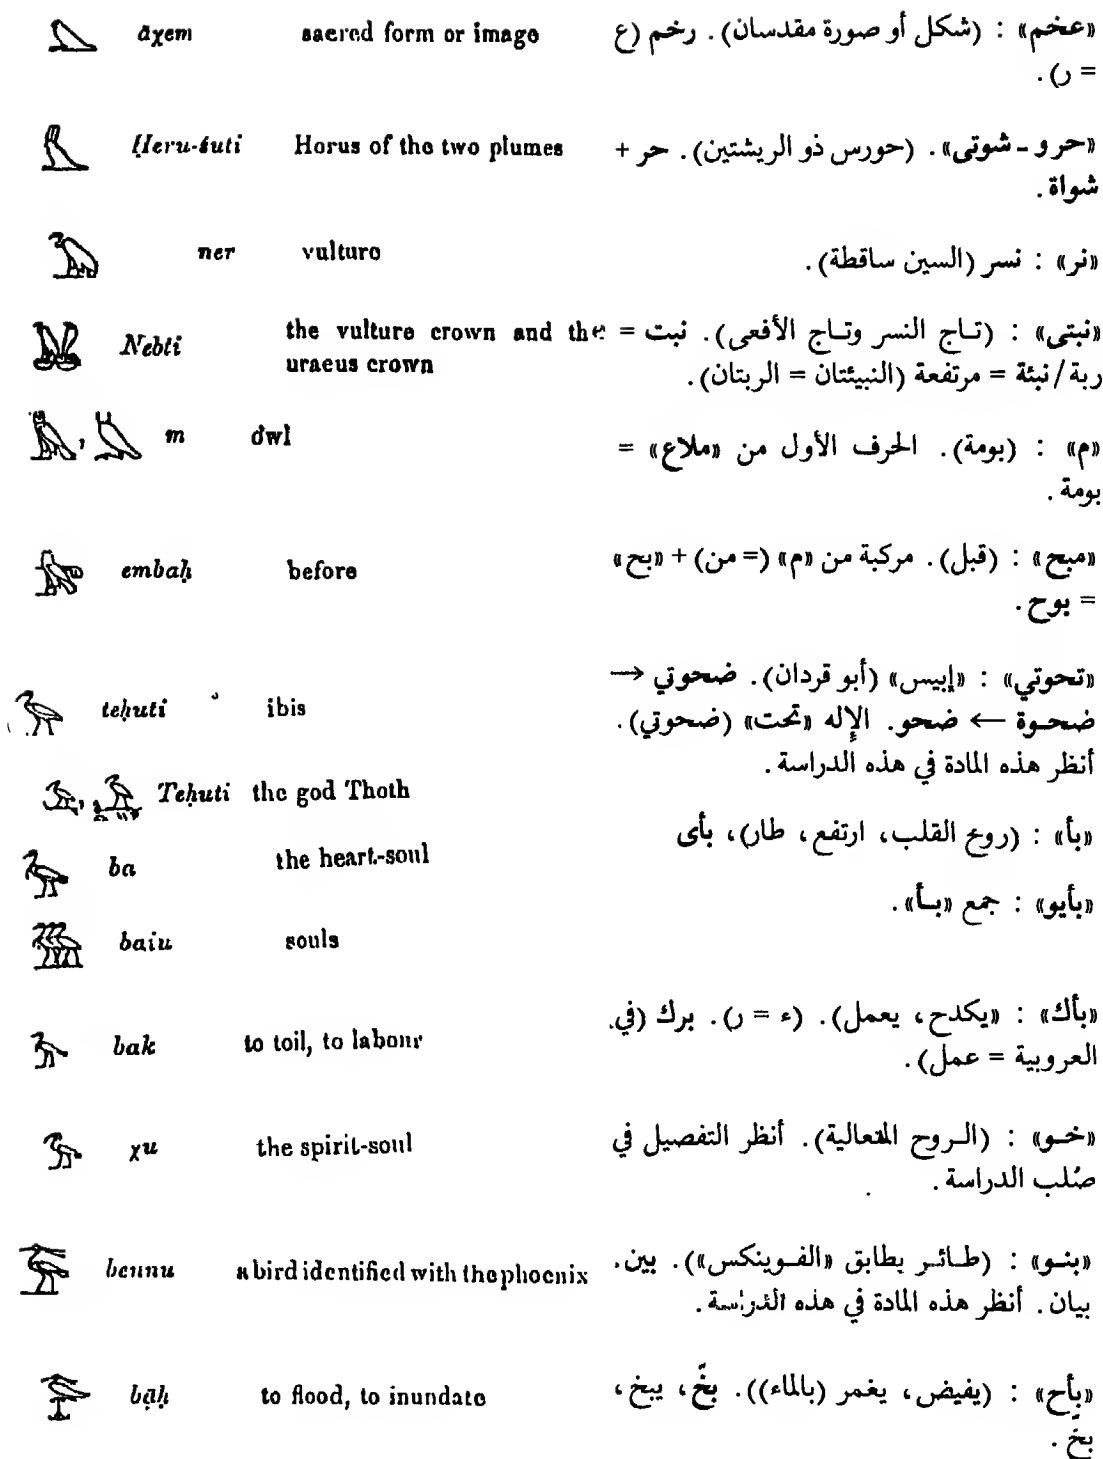 āχem sacred form or image «عخم» : (شكل أو صورة مقدسان). رخم (ع
= ر).
Ḥeru-śuti Horus of the two plumes «حرو - شوتى». (حورس ذو الريشتين). حر +
شواة.
ner vulture «نر» : نسر (السين ساقطة).
Nebti the vulture crown and the «نبتى» : (تاج النسر وتاج الأفعى). نبت =
uraeus crown ربة / نبئة = مرتفعة (النبيئتان = الربتان).
, m owl «م» : (بومة). الحرف الأول من «ملاع» =
بومة.
embaḥ before «مبح» : (قبل). مركبة من «م» (= من) + «بح»
= بوح.
teḥuti ibis «تحوتي» : «إبيس» (أبو قردان). ضحوتي →
ضحوة ← ضحو. الإله «تحت» (ضحوتي).
أنظر هذه المادة في هذه الدراسة.
, Teḥuti the god Thoth
ba the heart-soul «بأ» : (روح القلب، ارتفع، طار)، بأى
«بأيو» : جمع «بـأ».
baiu souls
bak to toil, to labour «بأك» : «يكدح، يعمل). (ء = ر). برك (في
العروبية = عمل).
χu the spirit-soul «خـو» : (الـروح المتعالية). أنظر التفصيل في
صُلب الدراسة.
bennu a bird identified with the phoenix «بنـو» : (طـائـر يطابق «الفـوينكس»). بين.
بيان. أنظر هذه المادة في هذه الدراسة.
bąḥ to flood, to inundate «بأح» : (يفيض، يغمر (بالماء)). بخّ، يبخ،
بخّ.